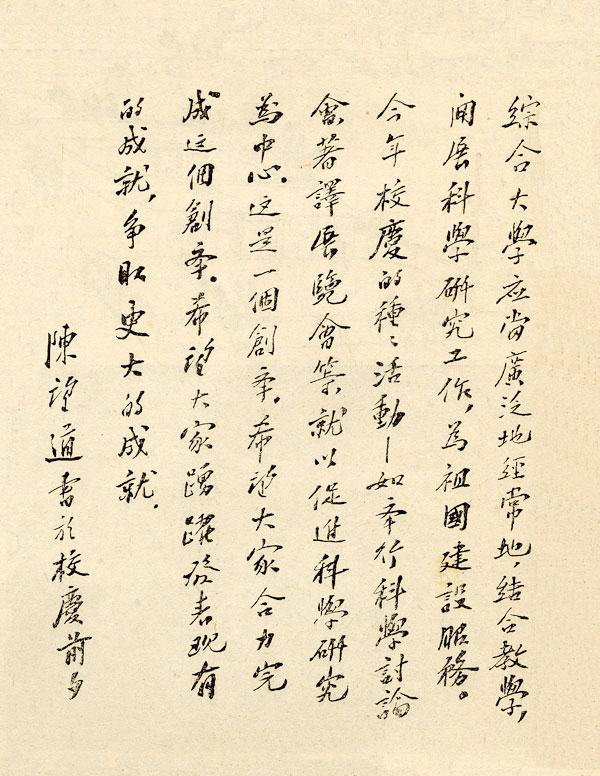 綜合大學应当廣泛地經常地，結合教學，
開展科學研究工作，為祖國建設服務。
今年校慶的種々活動—如举行科學討論
會、著譯展覽會等，就以促進科學研究
為中心。这是一個創举。希望大家合力完
成这個創举。希望大家踴躍發表现有
的成就，争取更大的成就．
陳望道書於校慶前夕